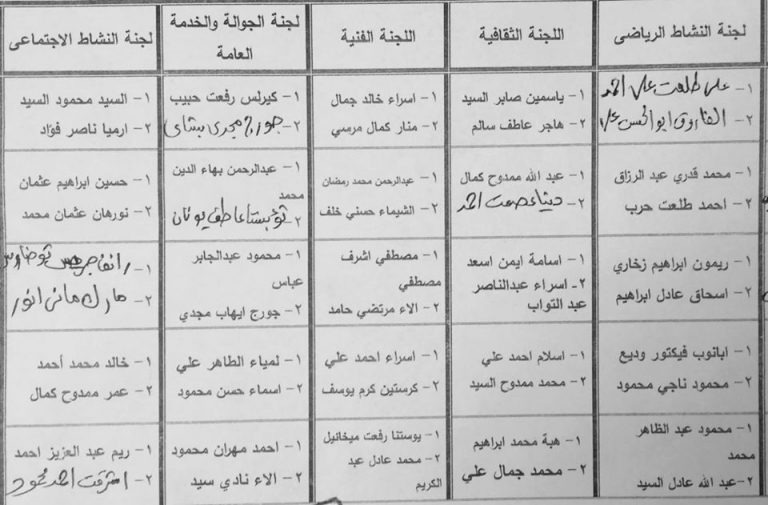 لجنة النشاط الرياضى
اللجنة الثقافية
اللجنة الفنية
لجنة الجوالة والخدمة
العامة
لجنة النشاط الاجتماعى
١- على طلعت على احمد
٢- الفاروق ابوالحسن على
١- ياسمين صابر السيد
٢- هاجر عاطف سالم
١- اسراء خالد جمال
٢- منار كمال مرسي
١- كيرلس رفعت حبيب
٢- جورج مجدى بشاى
١- السيد محمود السيد
٢- ارميا ناصر فؤاد
١- محمد قدري عبد الرزاق
٢- احمد طلعت حرب
١- عبد الله ممدوح كمال
٢- دينا عصمت احمد
١- عبدالرحمن محمد رمضان
٢- الشيماء حسني خلف
١- عبدالرحمن بهاء الدين
محمد
٢- عاطف يونان
١- حسين ابراهيم عثمان
٢- نورهان عثمان محمد
١- ريمون ابراهيم زخاري
٢- اسحاق عادل ابراهيم
١- اسامة ايمن اسعد
٢- اسراء عبدالناصر
عبد التواب
١- مصطفي اشرف
مصطفي
٢- الاء مرتضي حامد
١- محمود عبدالجابر
عباس
٢- جورج ايهاب مجدي
١-
٢- مارك هانى انور
١- ابانوب فيكتور وديع
٢- محمود ناجي محمود
١- اسلام احمد علي
٢- محمد ممدوح السيد
١- اسراء احمد علي
٢- كرستين كرم يوسف
١- لمياء الطاهر علي
٢- اسماء حسن محمود
١- خالد محمد أحمد
٢- عمر ممدوح كمال
١- محمود عبد الظاهر
محمد
٢- عبد الله عادل السيد
١- هبة محمد ابراهيم
٢- محمد جمال علي
١- يوستنا رفعت ميخائيل
٢- محمد عادل عبد
الكريم
١- احمد مهران محمود
٢- الاء نادي سيد
١- ريم عبد العزيز احمد
٢- اشرقت احمد محمود